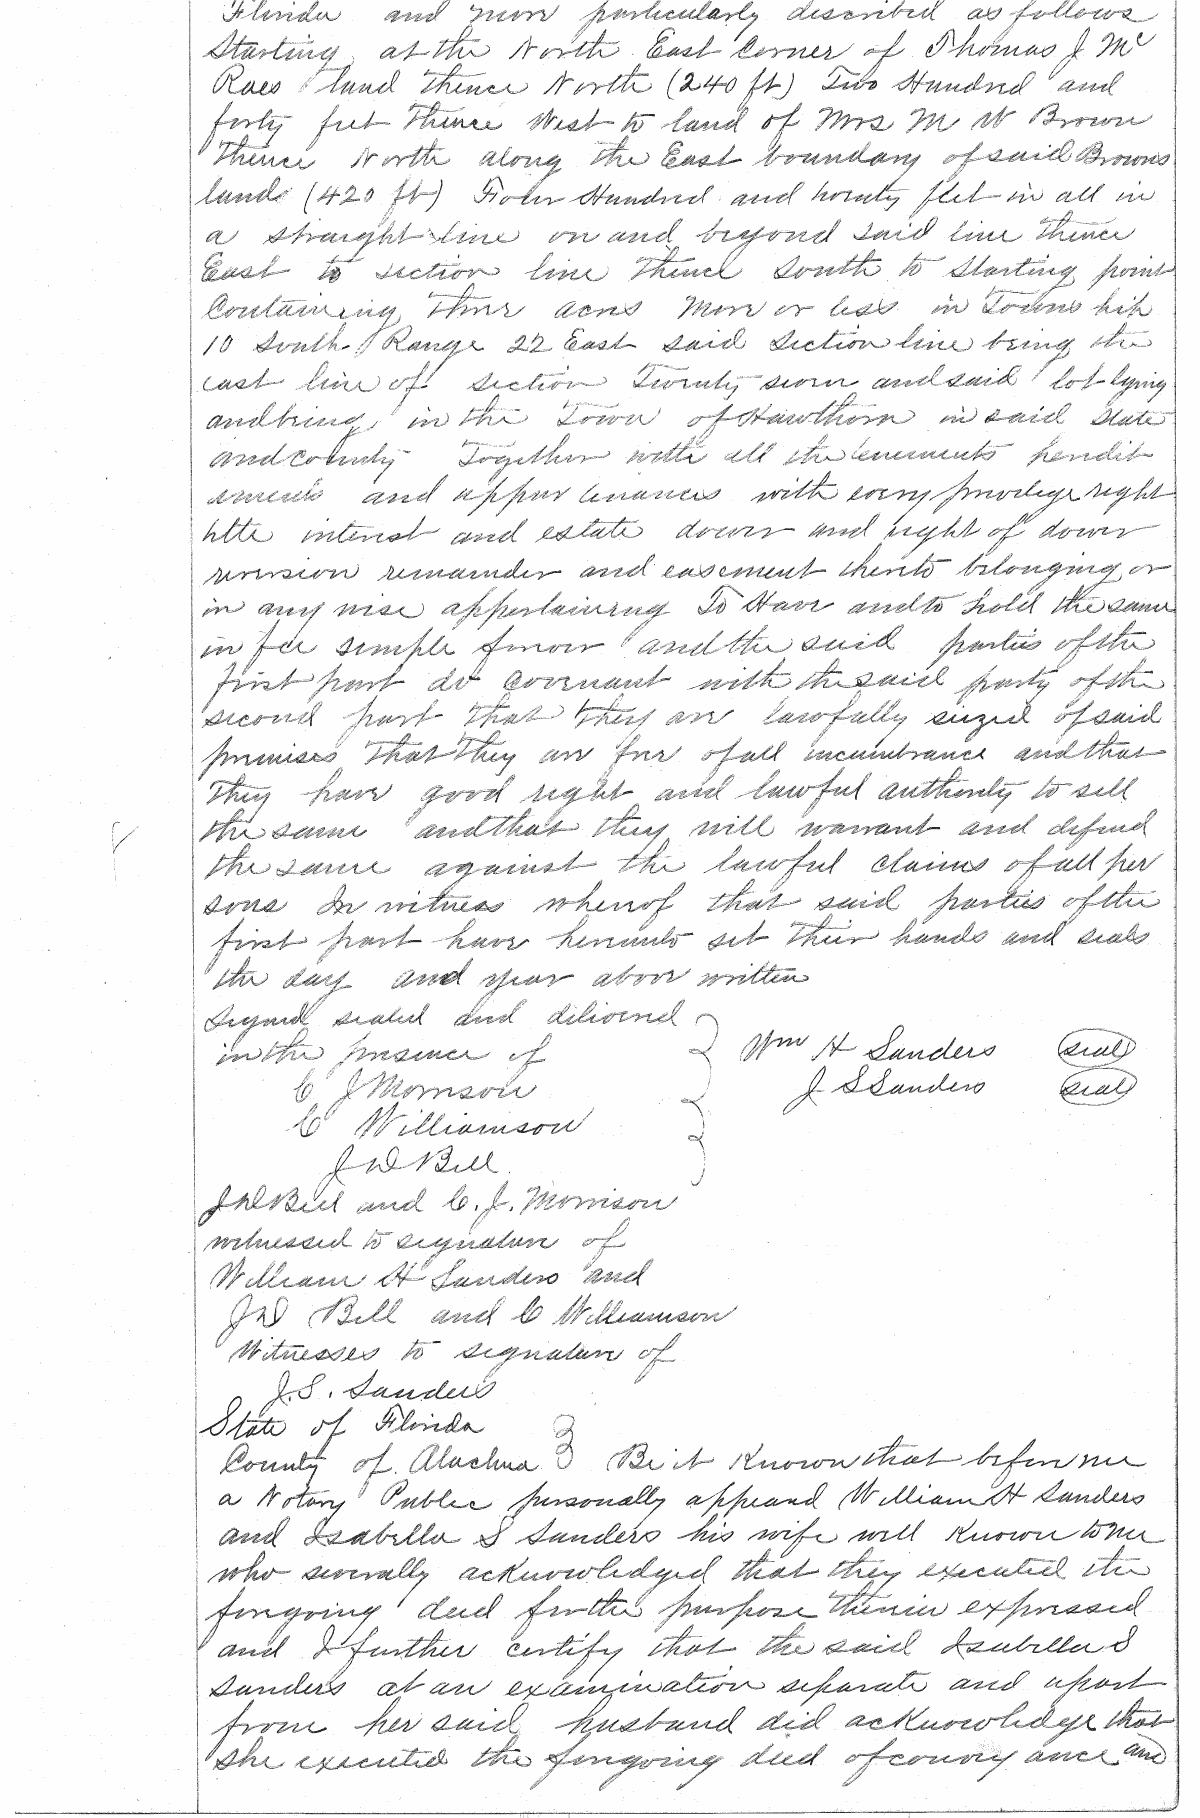 Florida and more particularly described as follows
Starting at the North East Corner of Thomas J Mc
Raes land Thence North (240 ft) Two Hundred and
forty feet Thence West to land of Mrs M W Brown
Thence North along the East boundary of said Browns
lands (420 ft) Four Hundred and twenty feet in all in
a straight line on and beyond said line thence
East to section line thence South to starting point
Containing three acres more or less in Towns hip
10 South Range 22 East said section line being the
east line of section Twenty seven and said lot lying
and being in the Town of Hawthorn in said State
and county Together with all the tenements heredit
aments and appur tenances with every privilege right
title interest and estate dower and right of dower
reversion remainder and easement thereto belonging or
in any wise appertaining To Have and to hold the same
in fee simple forever and the said parties of the
first part do covenant with the said party of the
second part that they are lawfully seized of said
premises that they are free of all incumbrance and that
they have good right and lawful authority to sell
the same and that they will warrant and defend
the same against the lawful claims of all per
sons In witness whereof that said parties of the
first part have hereunto set their hands and seals
the day and year above written
Signed sealed and delivered
in the presence of
Wm H Sanders (seal)
C J Morrison
J S Sanders (seal)
C Williamson
J W Bill
J W Bill and C. J. Morrison
witnessed to signature of
William H Sanders and
J W Bill and C Williamson
Witnesses to signature of
J. S. Sanders
State of Florida
County of Alachua } Be it Known that before me
a Notary Public personally appeared William H Sanders
and Isabella S Sanders his wife well Known to me
who severally acknowledged that they executed the
foregoing deed for the purpose therein expressed
and I further certify that the said Isabella S
Sanders at an examination separate and apart
from her said husband did acknowledge that
she executed the foregoing deed of convey ance and